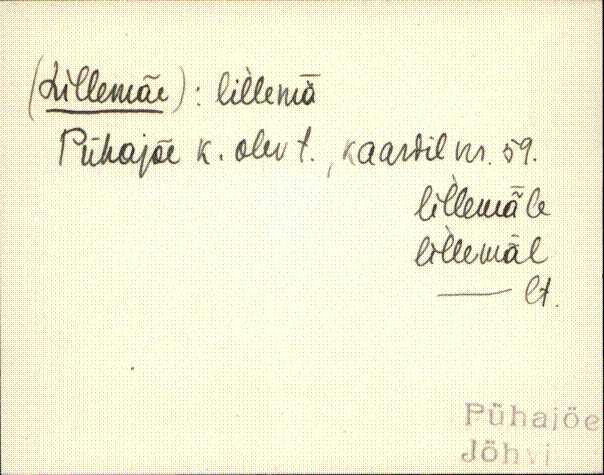 (Lillemäe) : lìllemä̅
Pühajõe k. olev t., kaardil nr. 59.
lìllemä̅le
lìllemäl
—— lt.
Pühajõe
Jõhvi